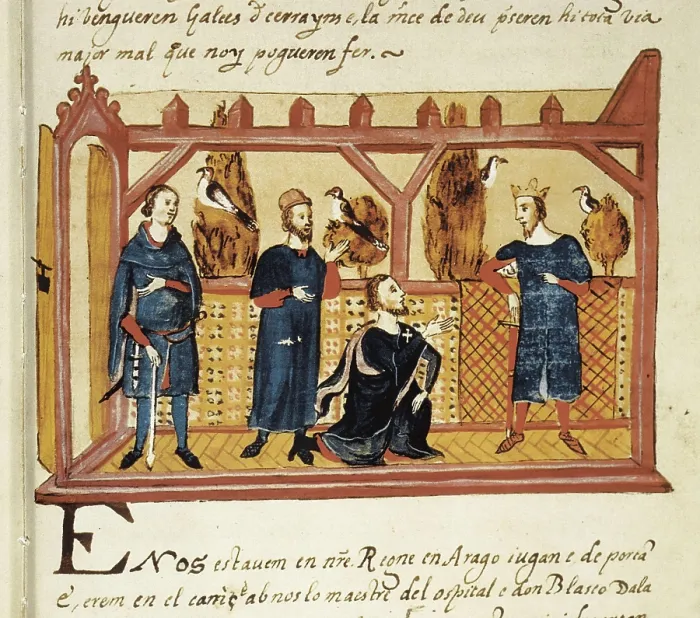 hi vengueren Galees d cerrayns e, la mce de deu pseren hi tota via
major mal que noy pogueren fer.~
E Nos estauem en nre. Reone en Arago iugan e, de porta
e, erem en el camç ab nos lo maestre del ospital e don Blasco Dala